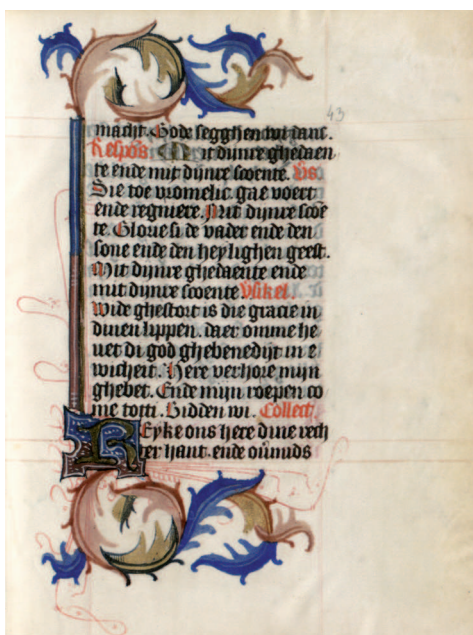 43
macht. Gode segghen wi danc.
Respõs Mit dijnre ghedaen
te ende mit dijnre scoente. Vs.
Sie toe vromelic. gae voert
ende regniere. Mit dijnre scoē
te. Glorie si de vader ende den
sone ende den heylighen geest.
Mit dijnre ghedaente ende
mit dijnre scoente Vsikel.
Wide ghestort is die gracie in
dinen lippen. daer omme he
uet di god ghebenedijt in e
wicheit. Here verhore mijn
ghebet. Ende mijn roepen co
me totti. Bidden wi. Collect
Reyke ons here dine rech
ter hant. ende